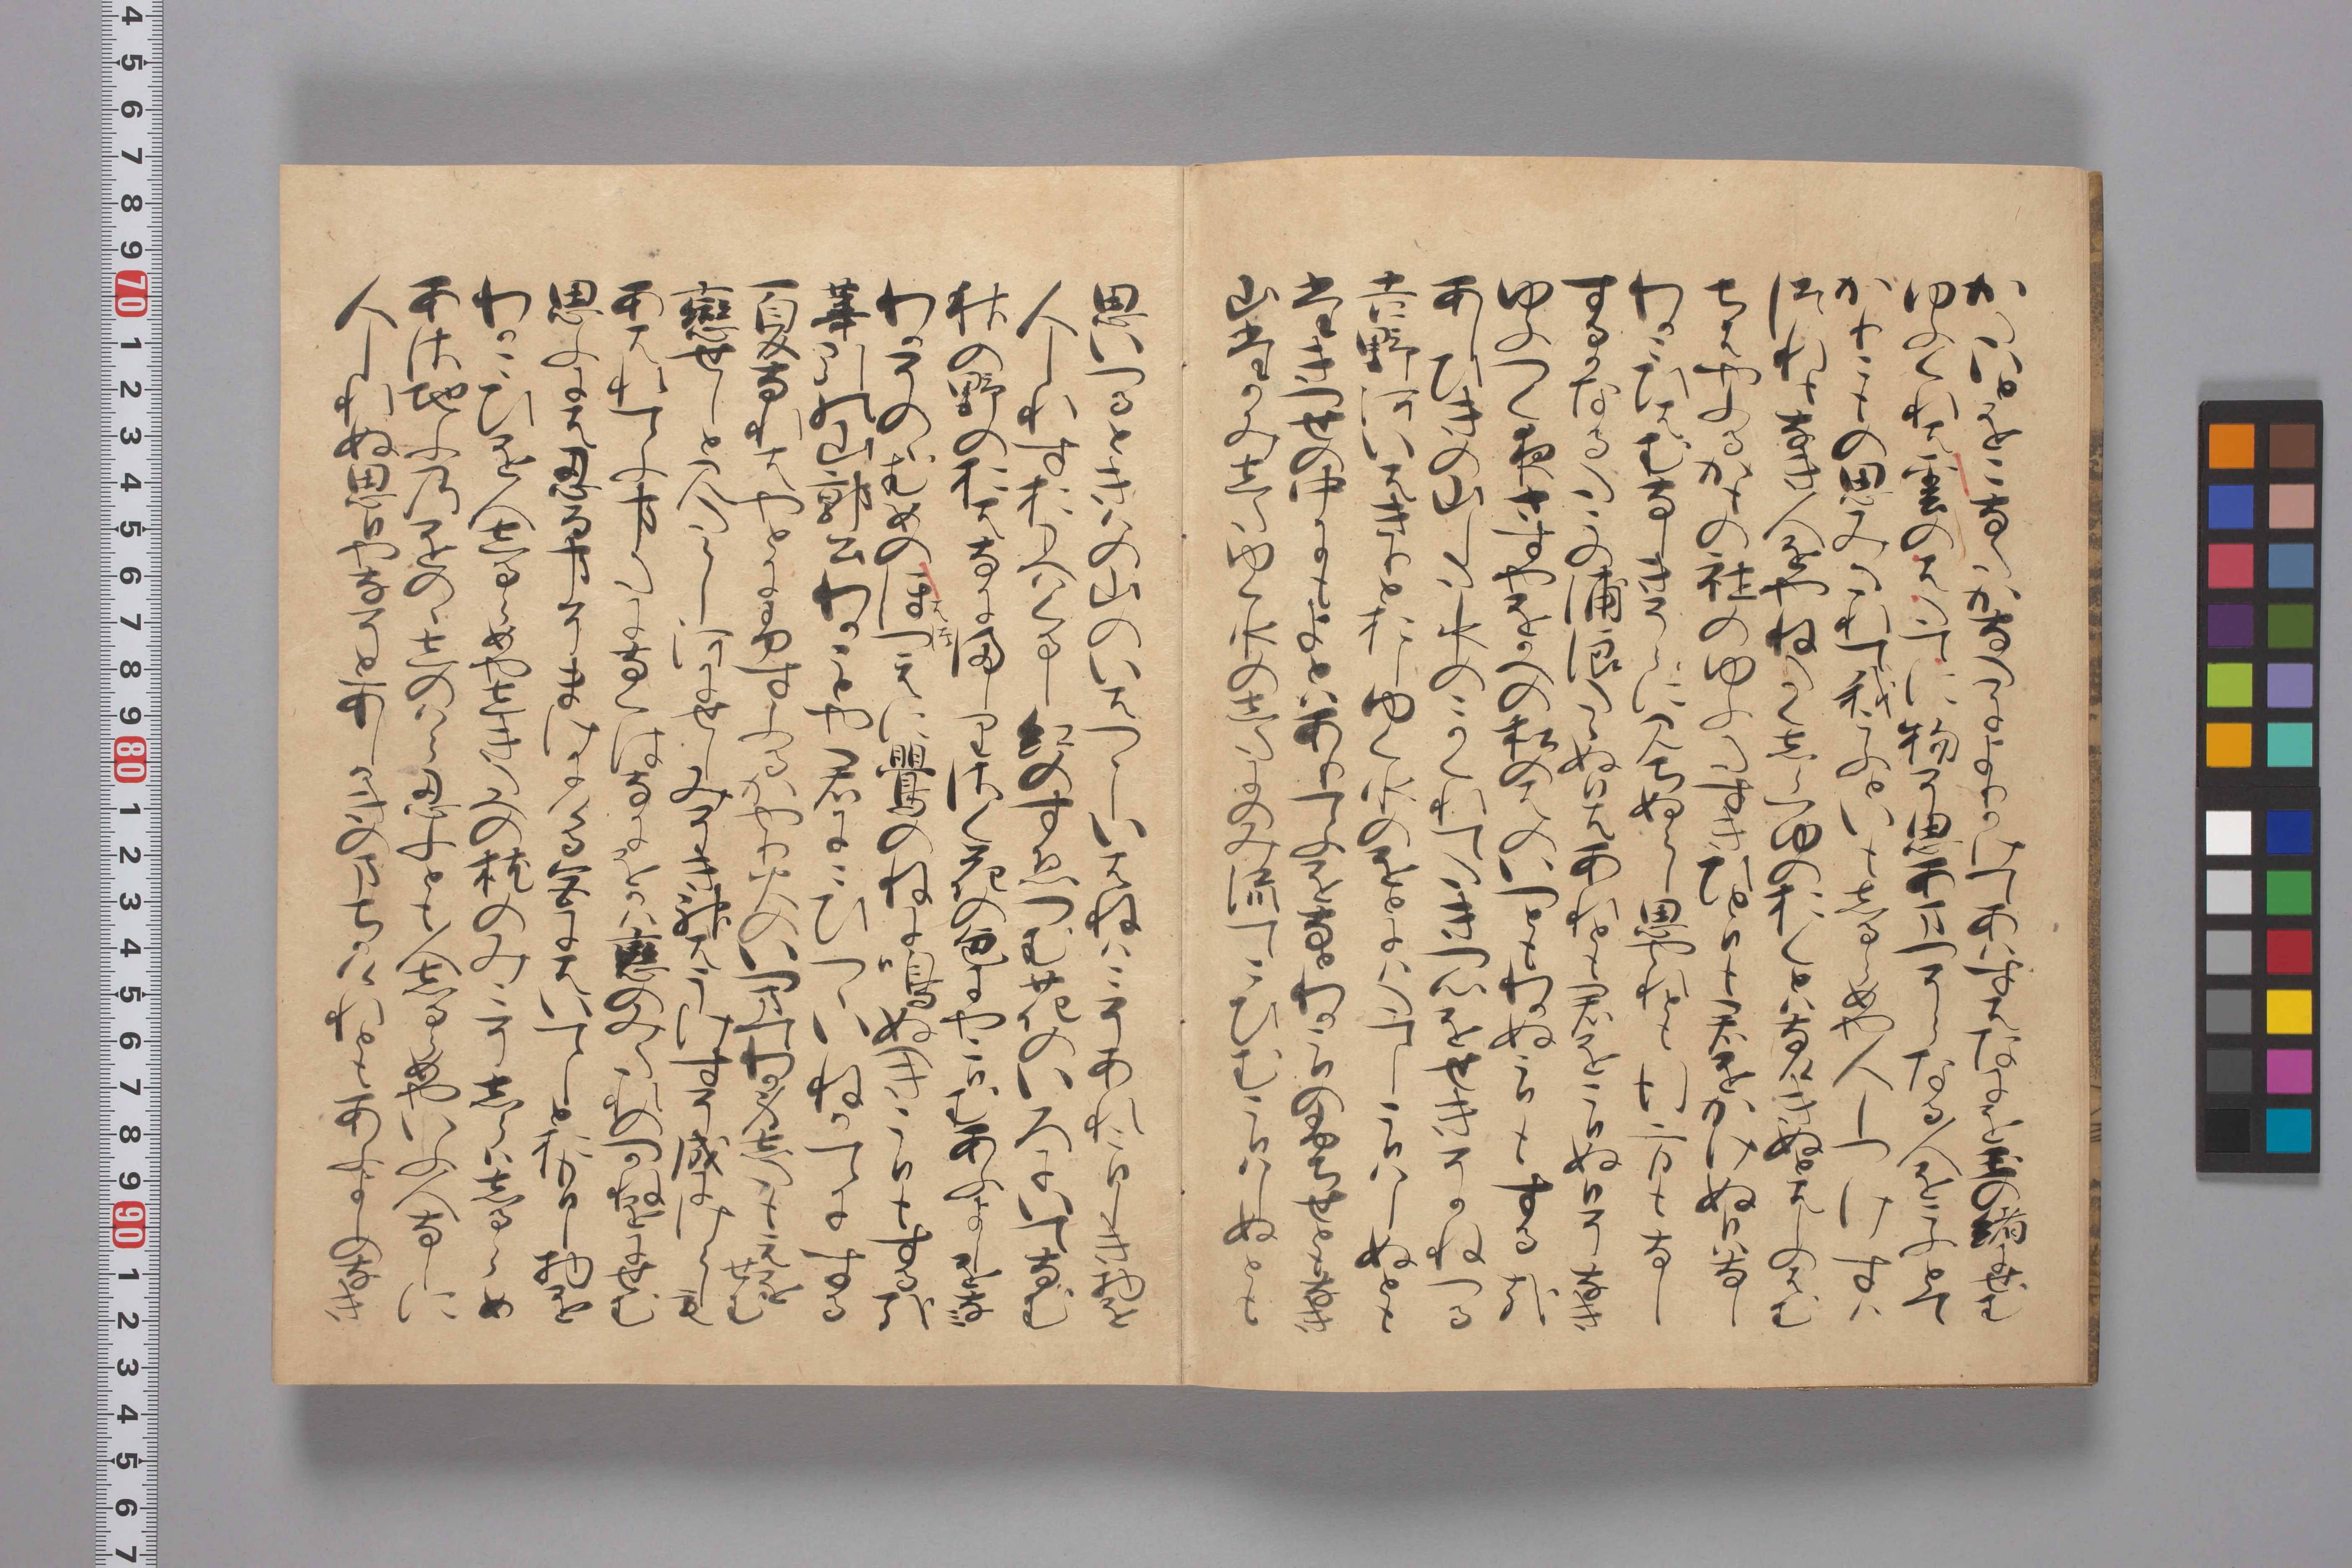 かたいとをこなたかなたによりかけてあはすはなにを玉の緒にせむ
ゆふくれは雲のはたてに物そ思あまつそらなる人をこふとて
かりこもの思みたれて我こふといもしるらめや人しつけすは
つれもなき人をやねたく白つゆのおくとはなけきぬとはしのはむ
ちはやふるかもの社のゆふたすきひとひも君をかけぬ日はなし
わかこひはむなしきそらにみちぬらし思やれともゆく方もなし
するかなるたこの浦浪たゝぬひはあれとも君をこひぬ日はなし
ゆふつく夜さすやをかへの松のはのいつともわかぬこひもするかな
あしひきの山した水のこかくれてたきつ心をせきそかねつる
吉野河いはきりとほしゆく水のをとにはたてしこひはしぬとも
たきつせの中にもよとはありてふをなとわかこひのふちせともなき
山たかみしたゆく水のしたにのみ流てこひむこひはしぬとも
思いつるときはの山のいはつゝしいはねはこそあれこひしき物を
人しれすおもへはくるし紅のすゑつむ花のいろにいてなむ
秋の野のおはなにましりさく花の色にやこひむあふよしをなみ
わかそのの梅のほつえに鶯のねになきぬへきこひもするかな
葦引の山郭公わかことや君にこひつゝいねかてにする
夏なれはやとにふすふるかやり火のいつまてわか身したもえをせむ
恋せしとみたらし河にせしみそき神はうけすそなりにけらしも
あはれてふことたになくはなにをかは恋のみたれのつかねをにせむ
思ふには忍ることそまけにける色にはいてしとおもひし物を
わかこひを人しるらめや敷妙の枕のみこそしらはしるらめ
あさちふのをのゝしのはら忍とも人しるらめやいふ人なしに
人しれぬ思やなそとあしかきのまちかけれともあふよしのなき